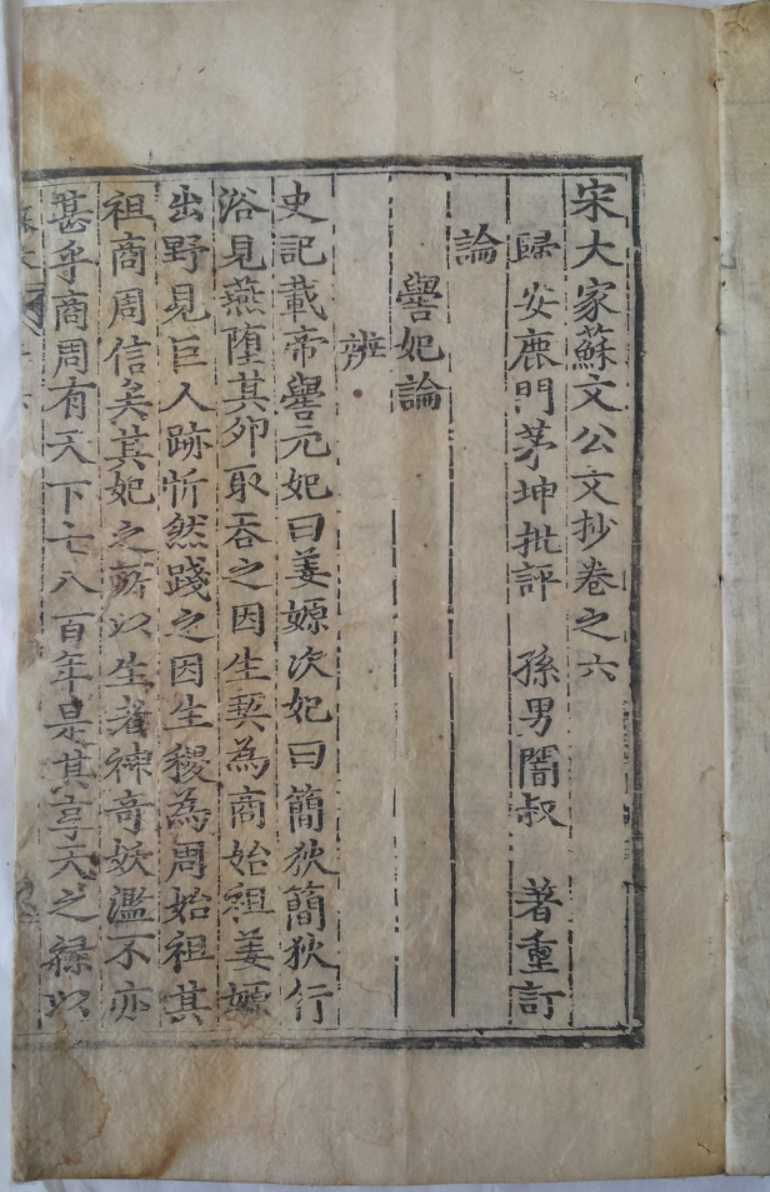 宋大家蘇文公文抄卷之六
歸安鹿門茅坤批評　孫男闇叔　著重訂
論
嚳妃論
辨
史記載帝嚳元妃曰姜嫄次妃曰簡狄簡狄行
浴見燕墮其卵取吞之因生契為商始祖姜嫄
出野見巨人跡忻然踐之因生稷為周始祖其
祖商周信矣其妃之所以生者神奇妖濫不亦
甚乎商周有天下七八百年是其享天之祿以